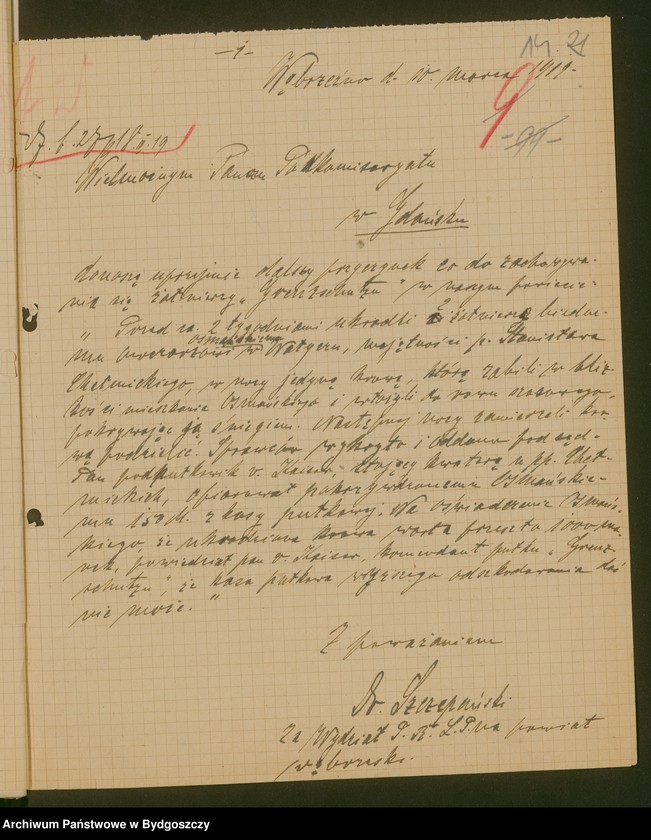 -1-
14. 21
Wąbrzeźno d. 10. marca 1919.
9
-99-
Wielmożnym Panom Podkomisaryatu
w Gdańsku
donoszę uprzejmie dalszy przyczynek co do zachowywa-
nia się żołnierzy „Grenzschutzu" w naszym powiecie:
„Przed ca. 2 tygodniami ukradli 2 żołnierze biedne-
mu owczarzowi Osmańskiemu w Wałyczu, majętności p. Stanisława
Chełmickiego, w nocy jedyną krowę, którą zabili w bliz-
kości mieszkania Osmańskiego i wrzucili do rowu szosowego,
pokrywając ją śniegiem. Następnej nocy zamierzali kro-
wę podzielić. Sprawców wykryto i oddano pod sąd.
Pan podpułkownik v. Kaiser, stojący kwaterą u pp. Cheł-
mickich, ofiarował pokrzywdzonemu Osmańskie-
mu 150 M. z kasy pułkowej. Na oświadczenie Osmań-
skiego że ukradziona krowa warta przeszło 1000 ma-
rek, powiedział pan v. Kaiser, komendant pułku „Grenz-
schutzu", że kasa pułkowa wyższego odszkodowania dać
nie może."
Z poważaniem
Dr. Szczepański
Za Wydział P. R. L. na powiat
wąbrzeski.
Archiwum Państwowe w Bydgoszczy